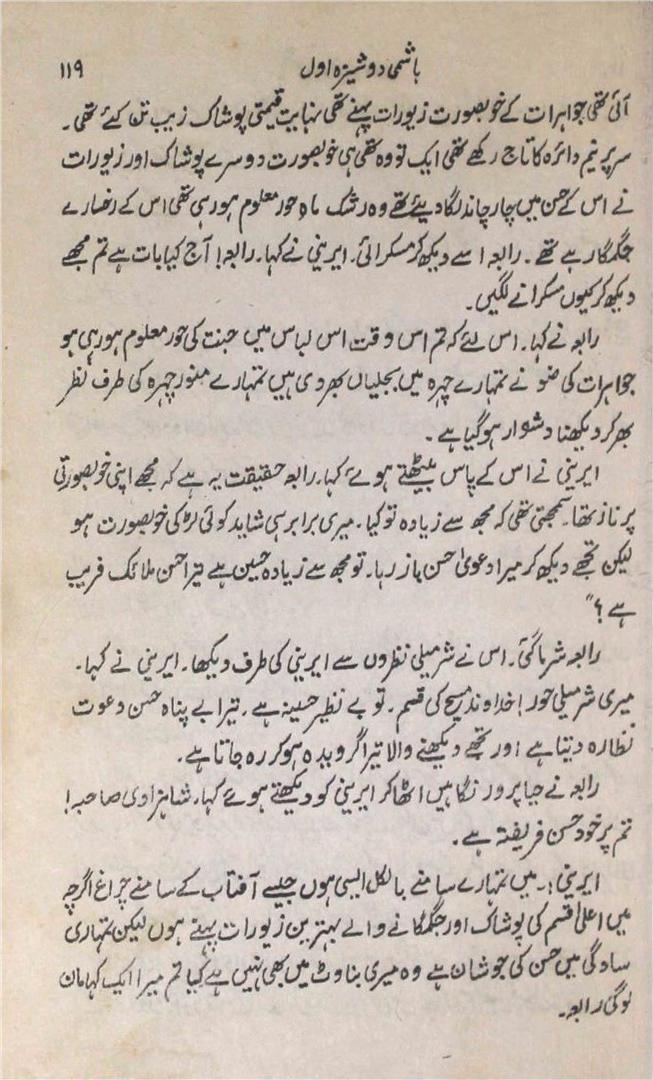 ہاشمی دوشیزہ اول ۱۱۹
آئی تھی جواہرات کے خوبصورت زیورات پہنے تھی نہایت قیمتی پوشاک زیب تن کئے تھی۔
سر پر نیم دائرہ کا تاج رکھے تھی ایک تو وہ تھی ہی خوبصورت دوسرے پوشاک اور زیورات
نے اس کے حسن میں چار چاند لگا دیئے تھے وہ رشک ماہ حور معلوم ہو رہی تھی اس کے رخسارے
جگمگا رہے تھے۔ رابعہ اسے دیکھ کر مسکرائی۔ ایرینی نے کہا۔ رابعہ! آج کیا بات ہے تم مجھے
دیکھ کر کیوں مسکرانے لگیں۔
رابعہ نے کہا۔ اس لئے کہ تم اس وقت اس لباس میں جنت کی حور معلوم ہو رہی ہو
جواہرات کی ضو نے تمہارے چہرہ میں بجلیاں بھر دی ہیں تمہارے منور چہرہ کی طرف نظر
بھر کر دیکھنا دشوار ہو گیا ہے۔
ایرینی نے اس کے پاس بیٹھتے ہوئے کہا۔ رابعہ حقیقت یہ ہے کہ مجھے اپنی خوبصورتی
پر ناز تھا۔ سمجھتی تھی کہ مجھ سے زیادہ تو کیا۔ میری برابر سی شاید کوئی لڑکی خوبصورت ہو
لیکن تجھے دیکھ کر میرا دعویٰ حسن باز رہا۔ تو مجھ سے زیادہ حسین ہے تیرا حسن ملائک فریب
ہے؟"
رابعہ شرما گئی۔ اس نے شرمیلی نظروں سے ایرینی کی طرف دیکھا۔ ایرینی نے کہا۔
میری شرمیلی حور! خداوند مسیح کی قسم۔ تو بے نظیر حسینہ ہے۔ تیرا بے پناہ حسن دعوت
نظارہ دیتا ہے اور تجھے دیکھنے والا تیرا گرویدہ ہو کر رہ جاتا ہے۔
رابعہ نے حیا پرور نگاہیں اٹھا کر ایرینی کو دیکھتے ہوئے کہا۔ شاہزادی صاحبہ!
تم پر خود حسن فریفتہ ہے۔
ایرینی:۔ میں تمہارے سامنے بالکل ایسی ہوں جیسے آفتاب کے سامنے چراغ اگرچہ
میں اعلیٰ قسم کی پوشاک اور جگمگانے والے بہترین زیورات پہنے ہوں لیکن تمہاری
سادگی میں حسن کی جو شان ہے وہ میری بناوٹ میں بھی نہیں ہے کیا تم میرا ایک کہا مان
لو گی رابعہ۔